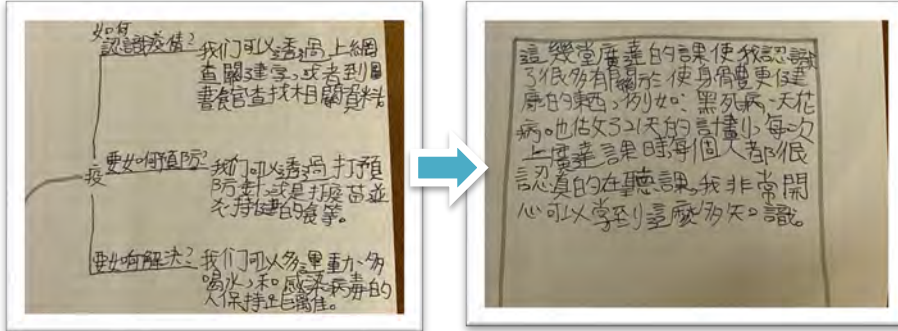 如何
認識疫情?
我们可以透過上網
查關建字,或者到圖
書館官查找相關資料
疫
要如何預防?
我们可以透過打預
防針,或是打疫苗並
保持健的食等。
要如何解決?
我们可以多運動、多
喝水,和感染病毒的
人保持距離。
這幾堂廣達的課使我認識
了很多有關於使身體更健
康的東西,例如:黑死病、天花
病。也做了21天的計劃,每次
上廣達課時每個人都很
認真的在聽課,我非常開
心可以學到這麼多知識。